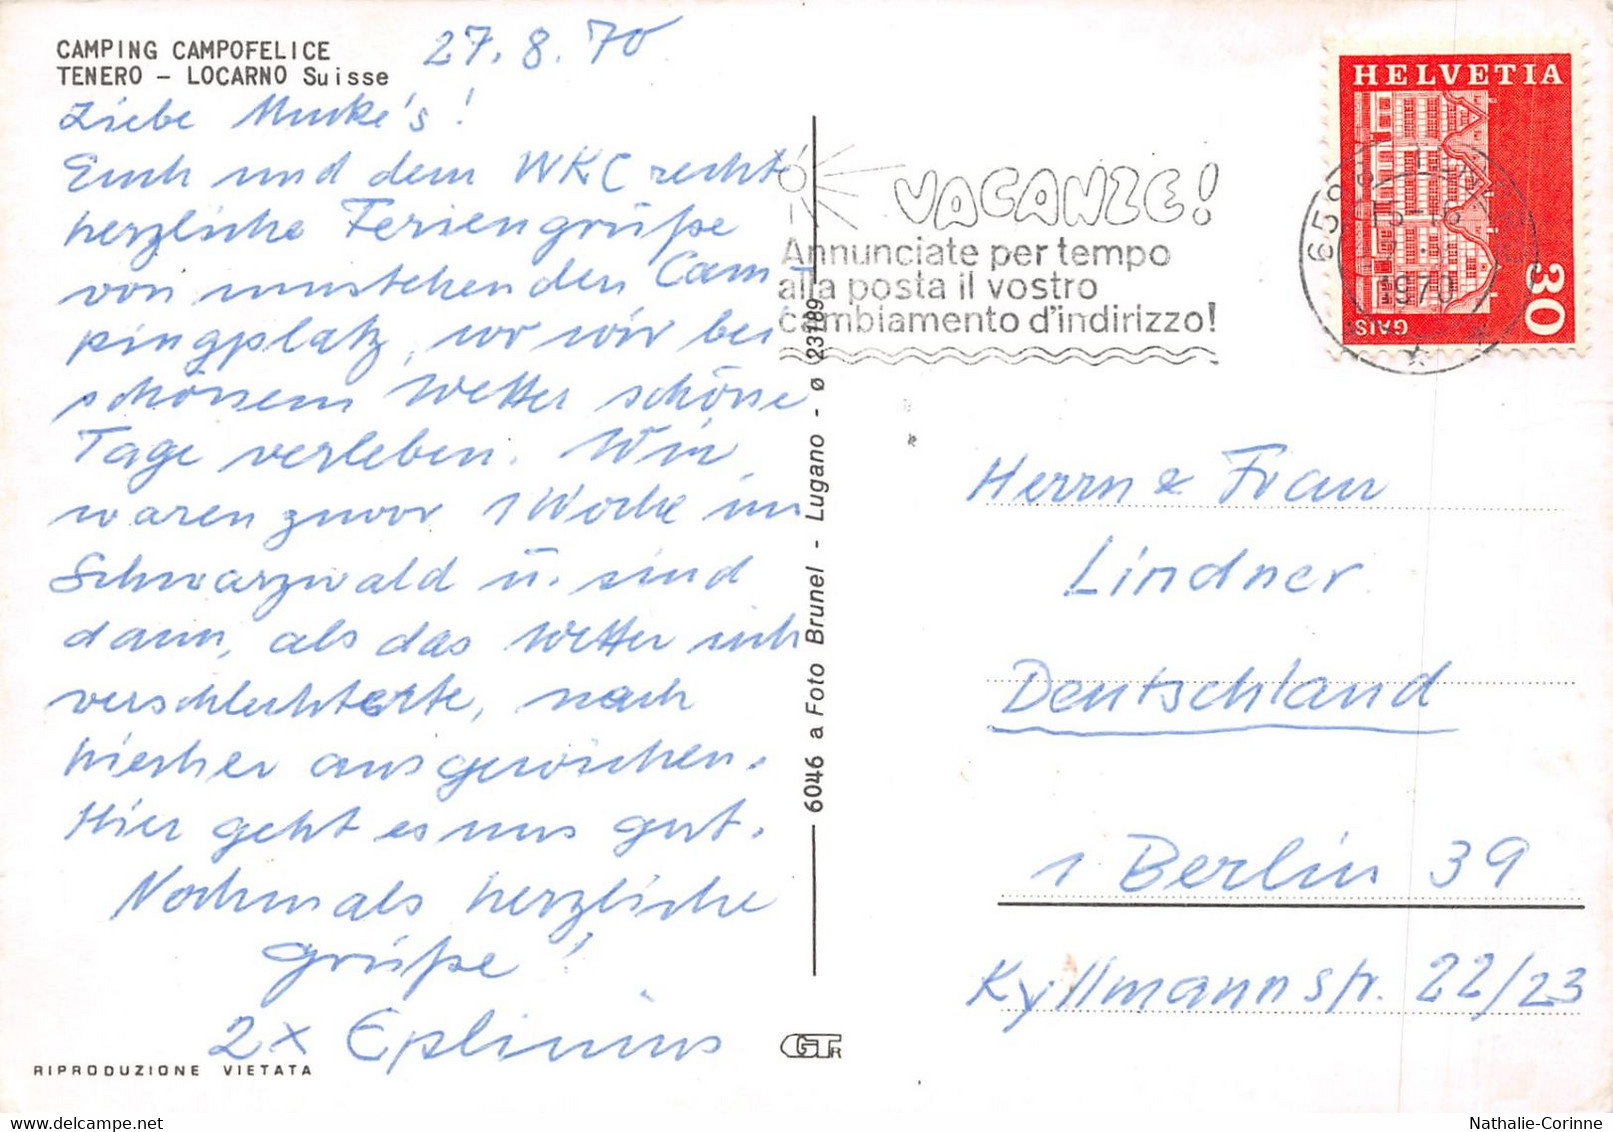 CAMPING CAMPOFELICE
TENERO – LOCARNO Suisse
27.8.70
Liebe Munke's!
Euch und dem WKC recht
herzliche Feriengrüße
von umstehenden Cam-
pingplatz, wo wir bei
schönem Wetter schöne
Tage verleben. Wir
waren zuvor 1 Woche im
Schwarzwald u. sind
dann, als das Wetter sich
verschlechterte, nach
hierher ausgewichen.
Hier geht es uns gut.
Nochmals herzliche
Grüße!
2x Eplinius
RIPRODUZIONE VIETATA
6046 a Foto Brunel - Lugano - ø 23189
GTR
VACANZE!
Annunciate per tempo
alla posta il vostro
cambiamento d'indirizzo!
HELVETIA
30
GAIS
1970
Herrn & Frau
Lindner
Deutschland
1 Berlin 39
Kyllmannstr. 22/23
Nathalie-Corinne